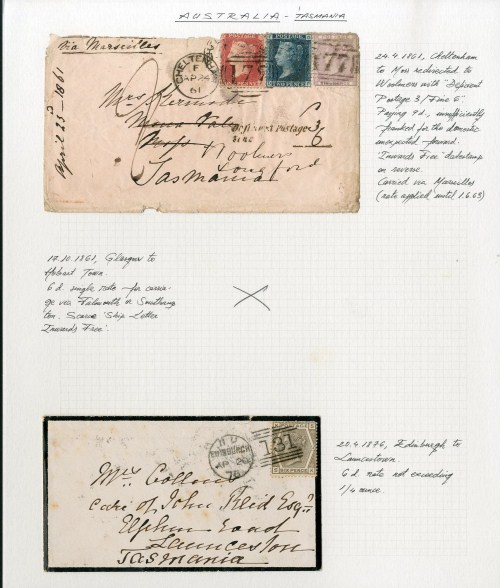 AUSTRALIA - TASMANIA
Via Marseilles
April 25 - 1861
CHELTENHAM
F
AP 24
61
TWO PENCE
Mrs Kermode
Mona Vale
Deficient Postage 3/
Fine 6
Woolmers
Longford
Tasmania
24.4.1861, Cheltenham
to Moss redirected to
Woolmers with "Deficient
Postage 3/Fine 6"
Paying 9d., insufficiently
franked for the domestic
unexpected forward.
'Inwards Free' datestamp
on reverse.
Carried via Marseilles
(rate applied until 1.6.63)
17.10.1861, Glasgow to
Hobart Town.
6d. single rate for carria-
ge via Falmouth or Southamp
ton. Scarce 'Ship Letter
Inwards Free'.
EDINBURGH
AP 20
76
131
SIX PENCE
care of John Reid Esqr
Elphin Road
Launceston
Tasmania
20.4.1876, Edinburgh to
Launcestown.
6d. rate not exceeding
1/4 ounce.